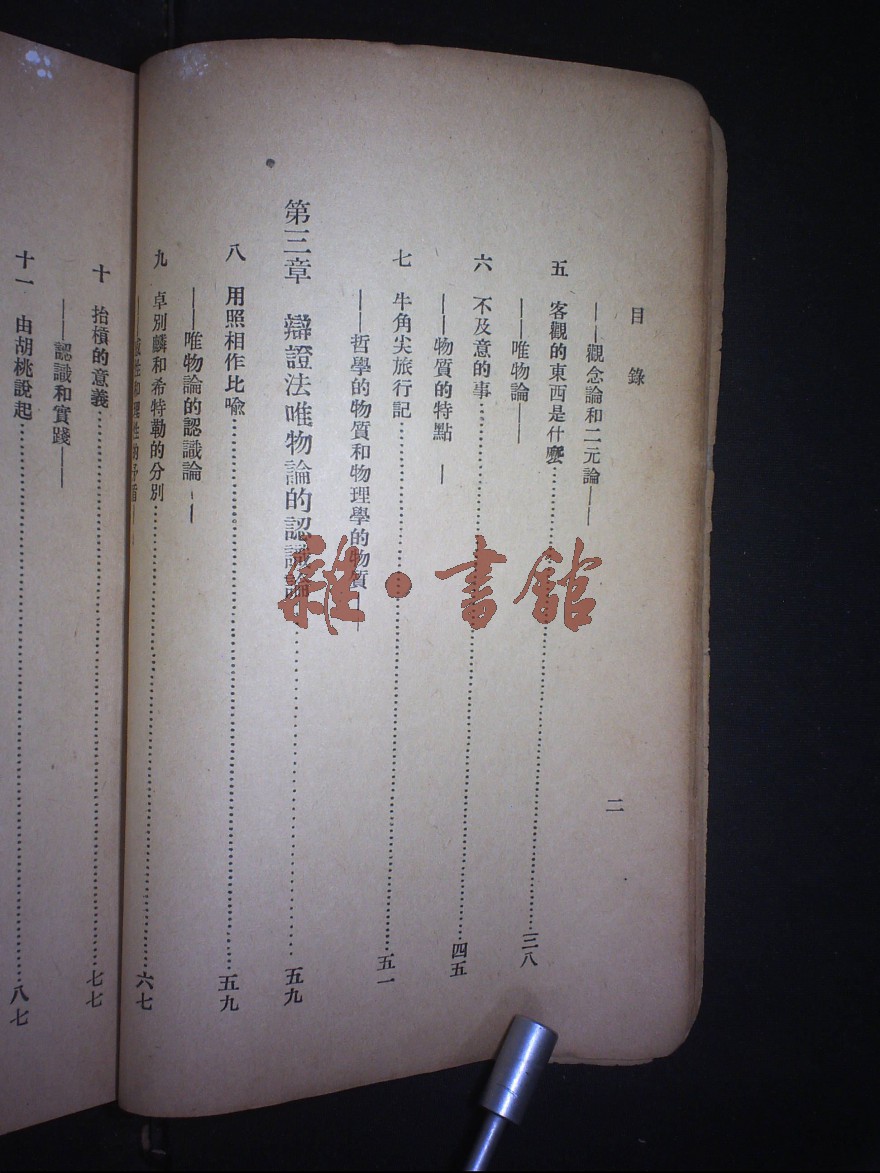 目錄
二
——觀念論和二元論——
五 客觀的東西是什麼…………三八
——唯物論——
六 不及意的事…………四五
——物質的特點——
七 牛角尖旅行記…………五一
——哲學的物質和物理學的物質——
第三章 辯證法唯物論的認識論…………五九
八 用照相作比喩…………五九
——唯物論的認識論——
九 卓別麟和希特勒的分別…………六七
性和性的矛盾——
十 抬槓的意義…………七七
——認識和實踐——
十一 由胡桃說起…………八七
雜·書館